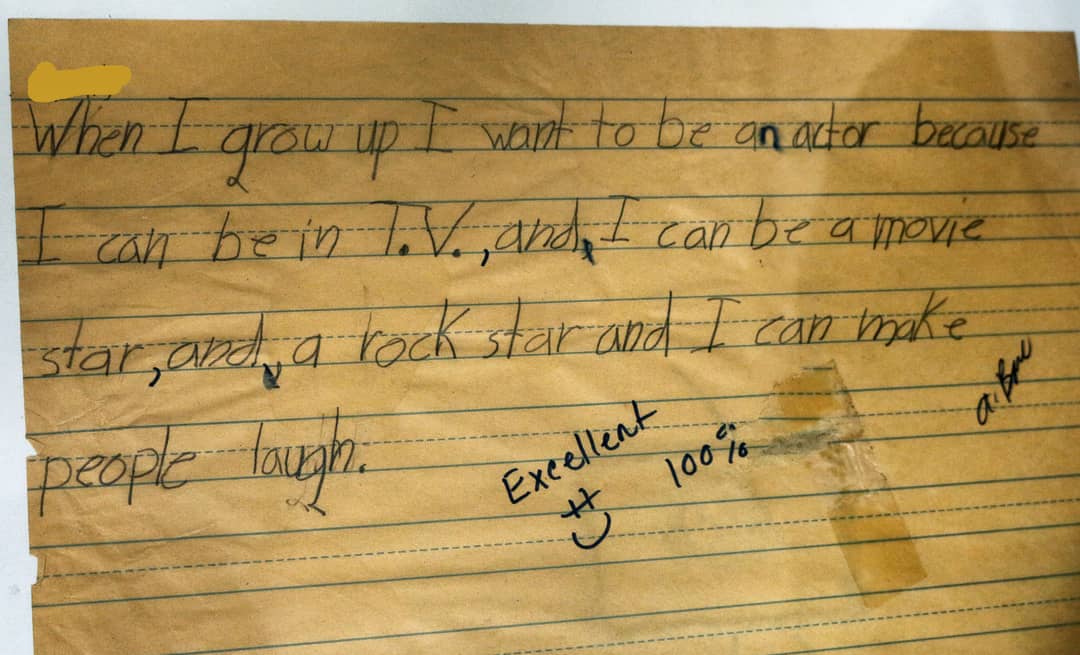 When I grow up I want to be an actor because
I can be in T.V., and, I can be a movie
star, and, a rock star and I can make
people laugh.
Excellent
100%